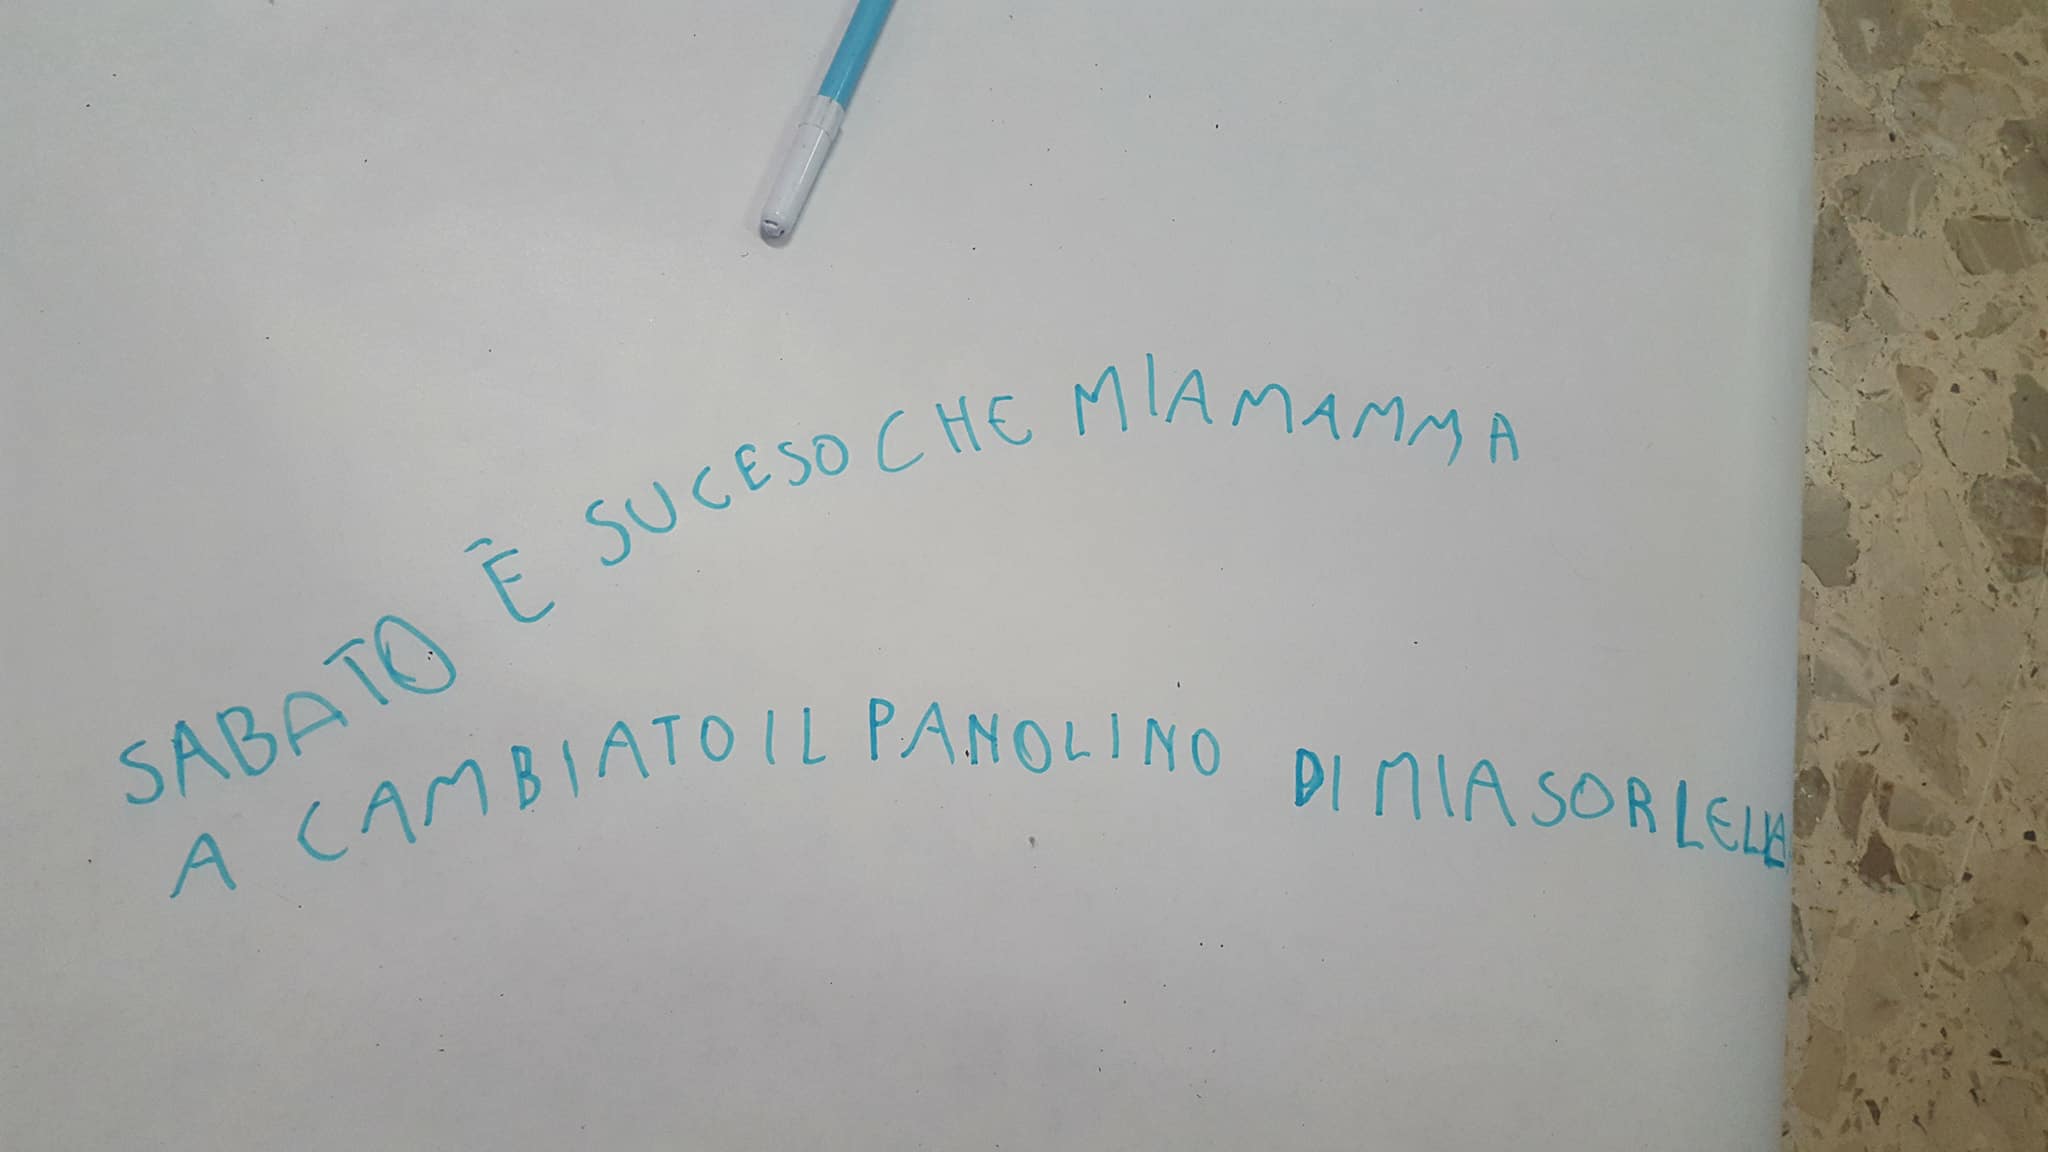 SABATO È SUCESO CHE MIA MAMMA
A CAMBIATO IL PANOLINO DI MIA SORLELLA